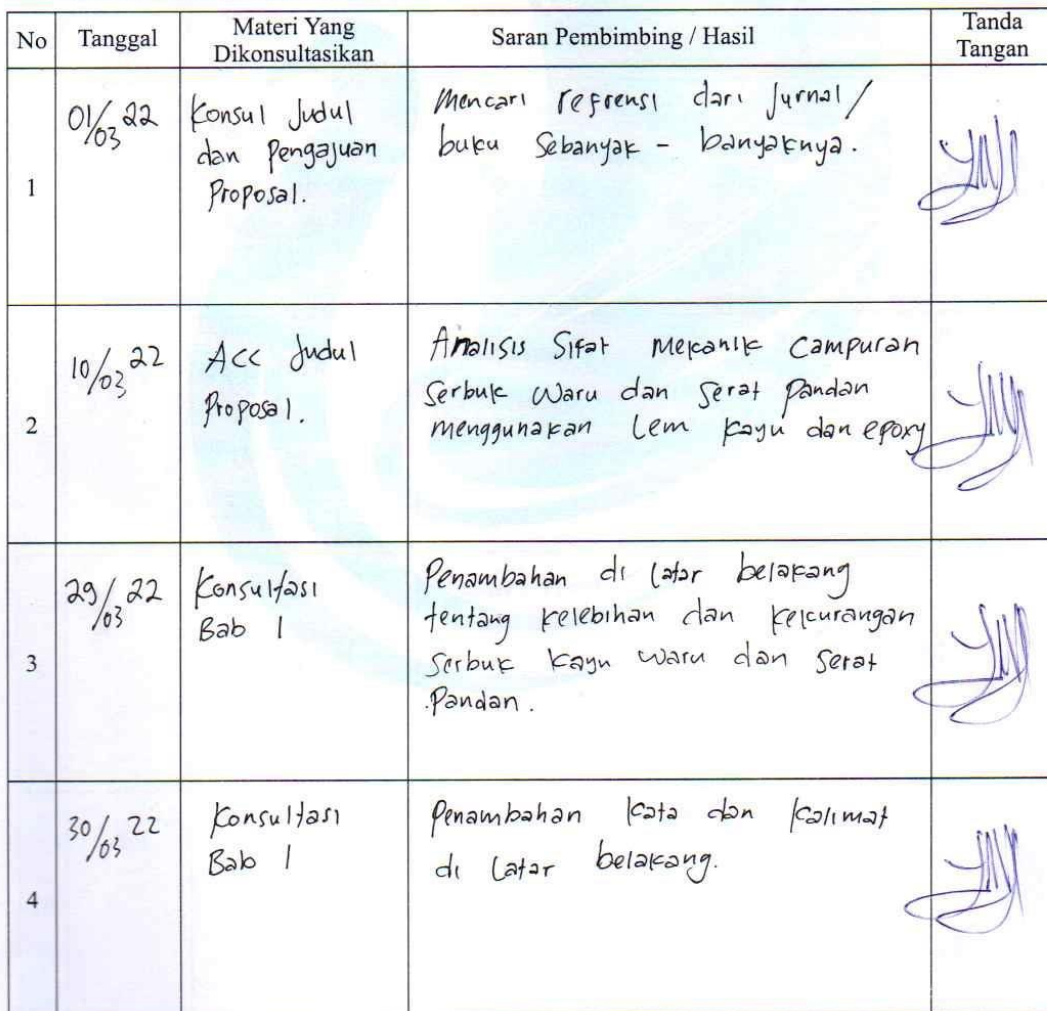 No Tanggal Materi Yang Dikonsultasikan Saran Pembimbing / Hasil Tanda Tangan
1
01/03 22
Konsul Judul
dan Pengajuan
Proposal.
Mencari refrensi dari Jurnal/
buku Sebanyak - banyaknya.
2
10/03 22
Acc Judul
Proposal.
Analisis Sifat Mekanik Campuran
Serbuk Waru dan Serat Pandan
menggunakan Lem Kayu dan epoxy
3
29/03 22
Konsultasi
Bab 1
Penambahan di latar belakang
tentang kelebihan dan kekurangan
Serbuk Kayu waru dan Serat
Pandan.
4
30/03 22
Konsultasi
Bab 1
Penambahan Kata dan Kalimat
di Latar belakang.